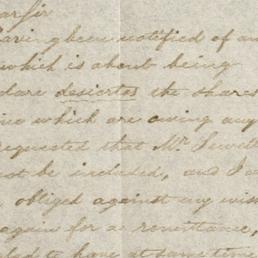 ar Sir
aving been notified of an
which is about being
clare desertes the shares
which are owing any
requested that Mr Sewell
not be included, and I a
obliged against any
again for a remittance,
to have at same time